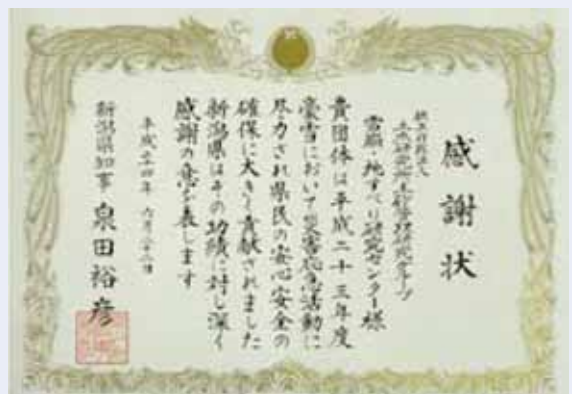 感謝状
独立行政法人
土木研究所土砂管理研究グループ
雪崩・地すべり研究センター様
貴団体は平成二十三年度
豪雪において災害応急活動に
尽力され県民の安心安全の
確保に大きく貢献されました
新潟県はその功績に対し深く
感謝の意を表します
平成二十四年 六月
新潟県知事 泉田裕彦